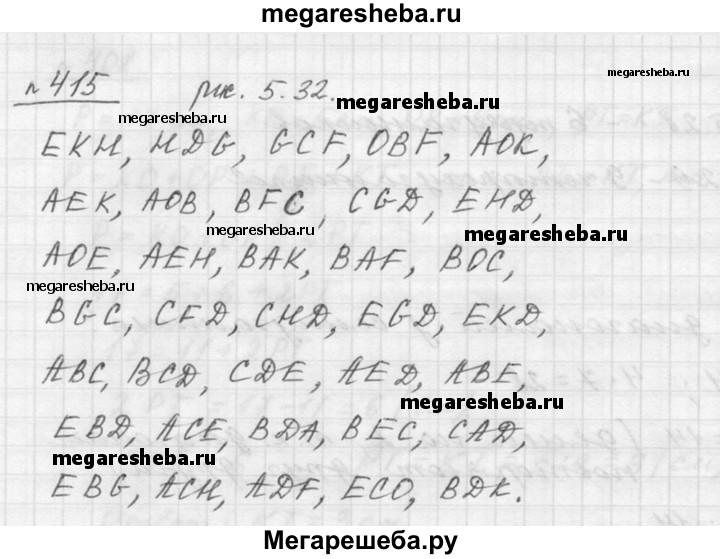 megaresheba.ru
№ 415 рис. 5.32.
megaresheba.ru
megaresheba.ru
megaresheba.ru
EKH, HDG, GCF, OBF, AOK,
AEK, AOB, BFC, CGD, EHD,
megaresheba.ru
megaresheba.ru
AOE, AEH, BAK, BAF, BOC,
megaresheba.ru
BGC, CFD, CHD, EGD, EKD,
ABC, BCD, CDE, AED, ABE,
megaresheba.ru
EBD, ACE, BDA, BEC, CAD,
megaresheba.ru
EBG, ACH, ADF, ECO, BDK.
Мегарешеба.ру